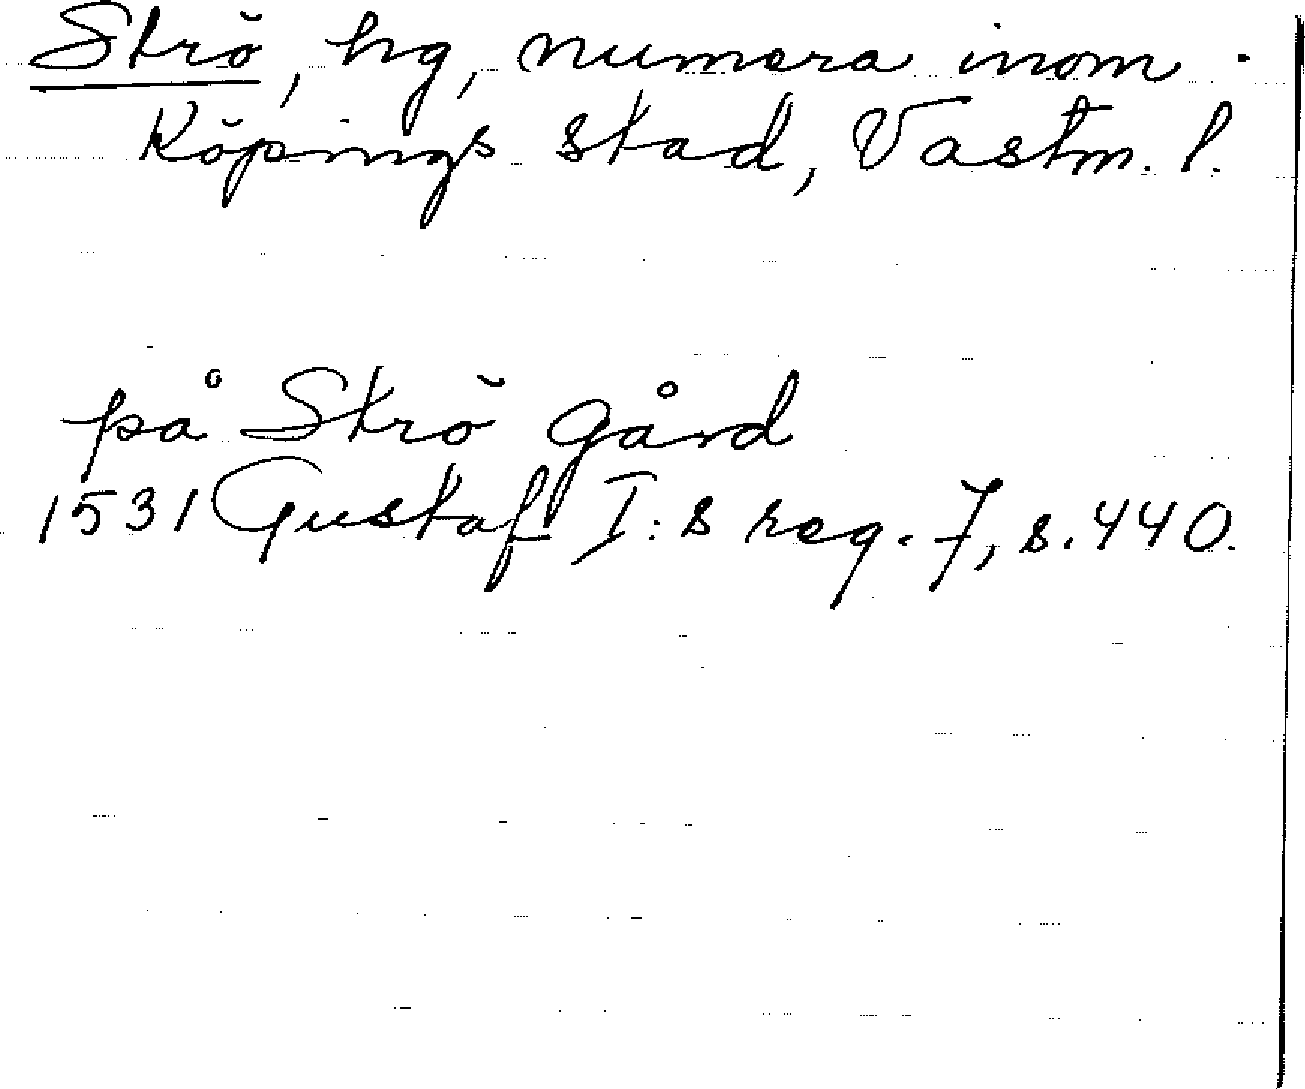 Strö, hg, numera inom
Köpings stad, Västm. l.
på Strö gård
1531 Gustaf I:s reg. 7, s. 440.